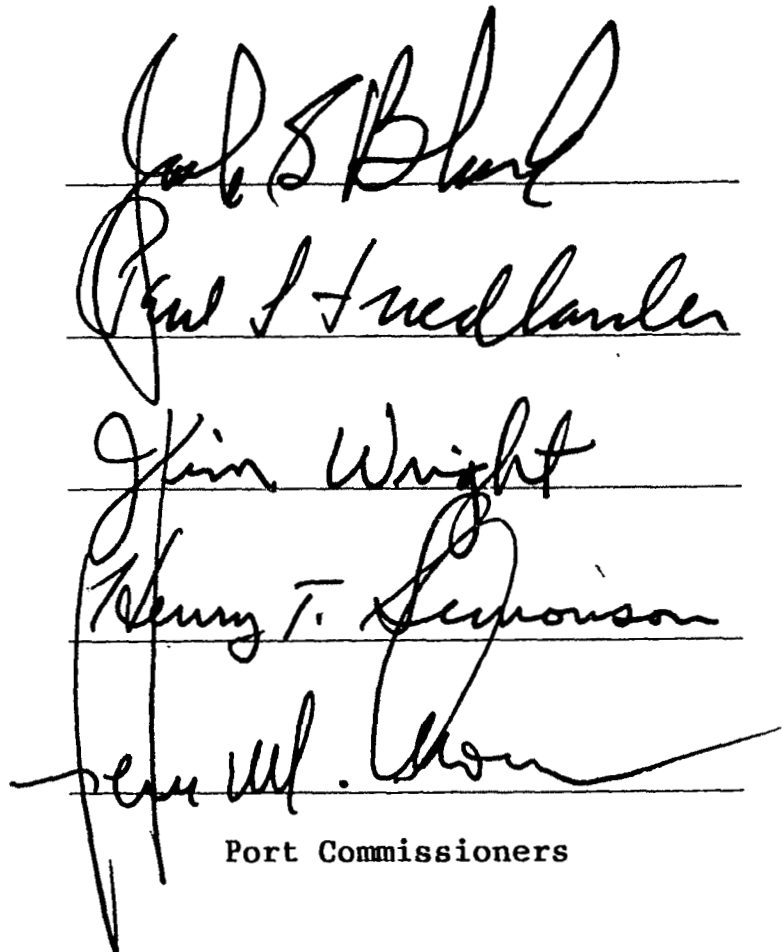 Jack S Block
Paul S Friedlander
J Kim Wright
Henry T. Simonson
Henry M. Aronson
Port Commissioners